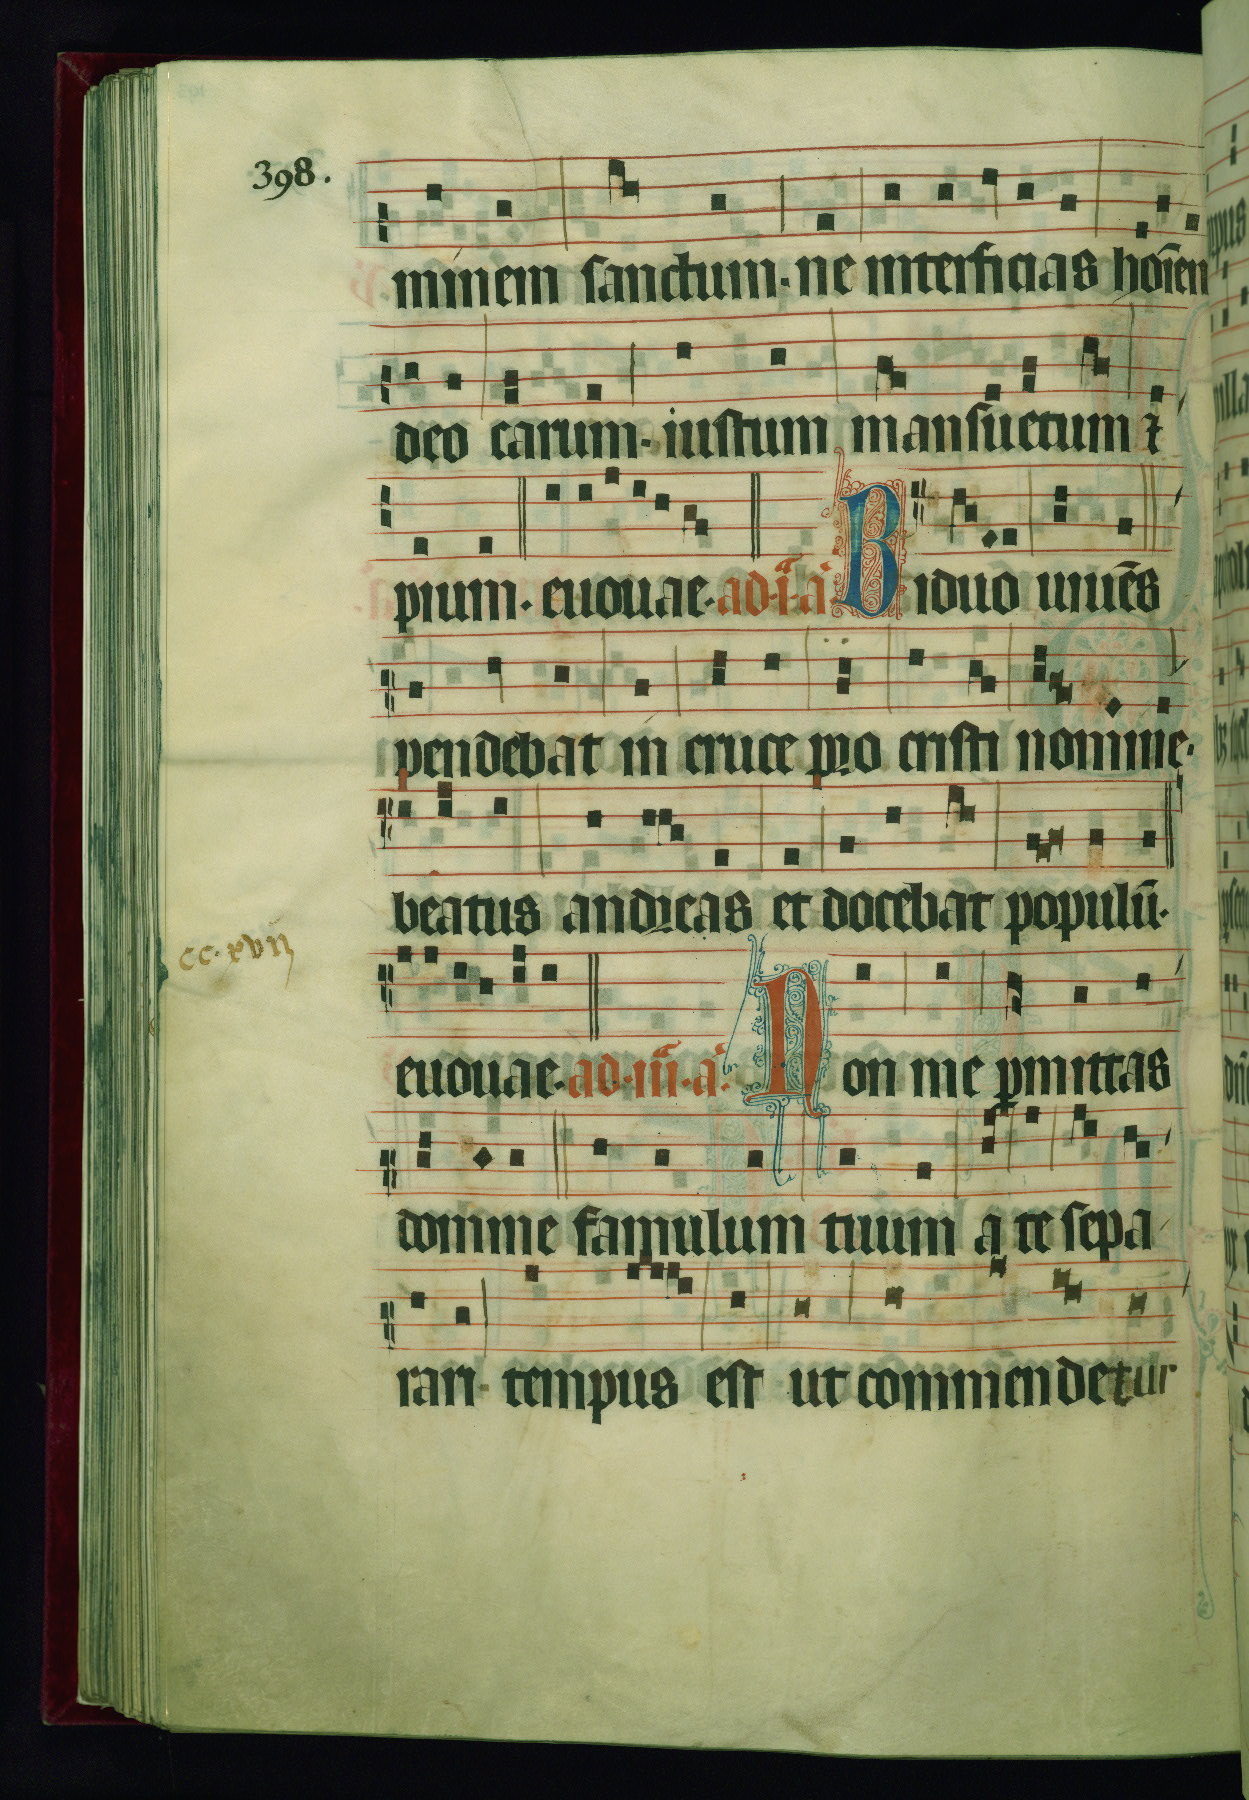 398.
minem sanctum· ne interficias hoīem
deo carum· iustum mansuetum ⁊
pium· euouae· ad·i·a· Biduo uiuēs
pendebat in cruce pro cristi nomine·
beatus andreas et docebat populū·
cc·xvii
euouae· ad·iii·a· Non me ꝑmittas
domine famulum tuum a te sepa
rari· tempus est ut commendetur